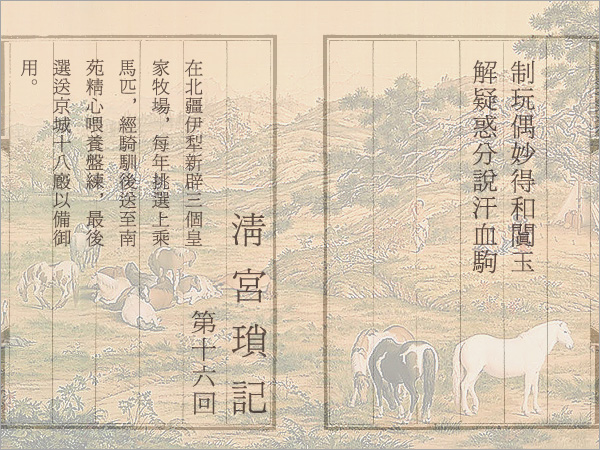 制玩偶妙得和闐玉
解疑惑分說汗血駒
清宮瑣記
第十六回
在北疆伊犁新辟三個皇
家牧場，每年挑選上乘
馬匹，經騎馴後送至南
苑精心喂養盤練，最後
選送京城十八廄以備御
用。